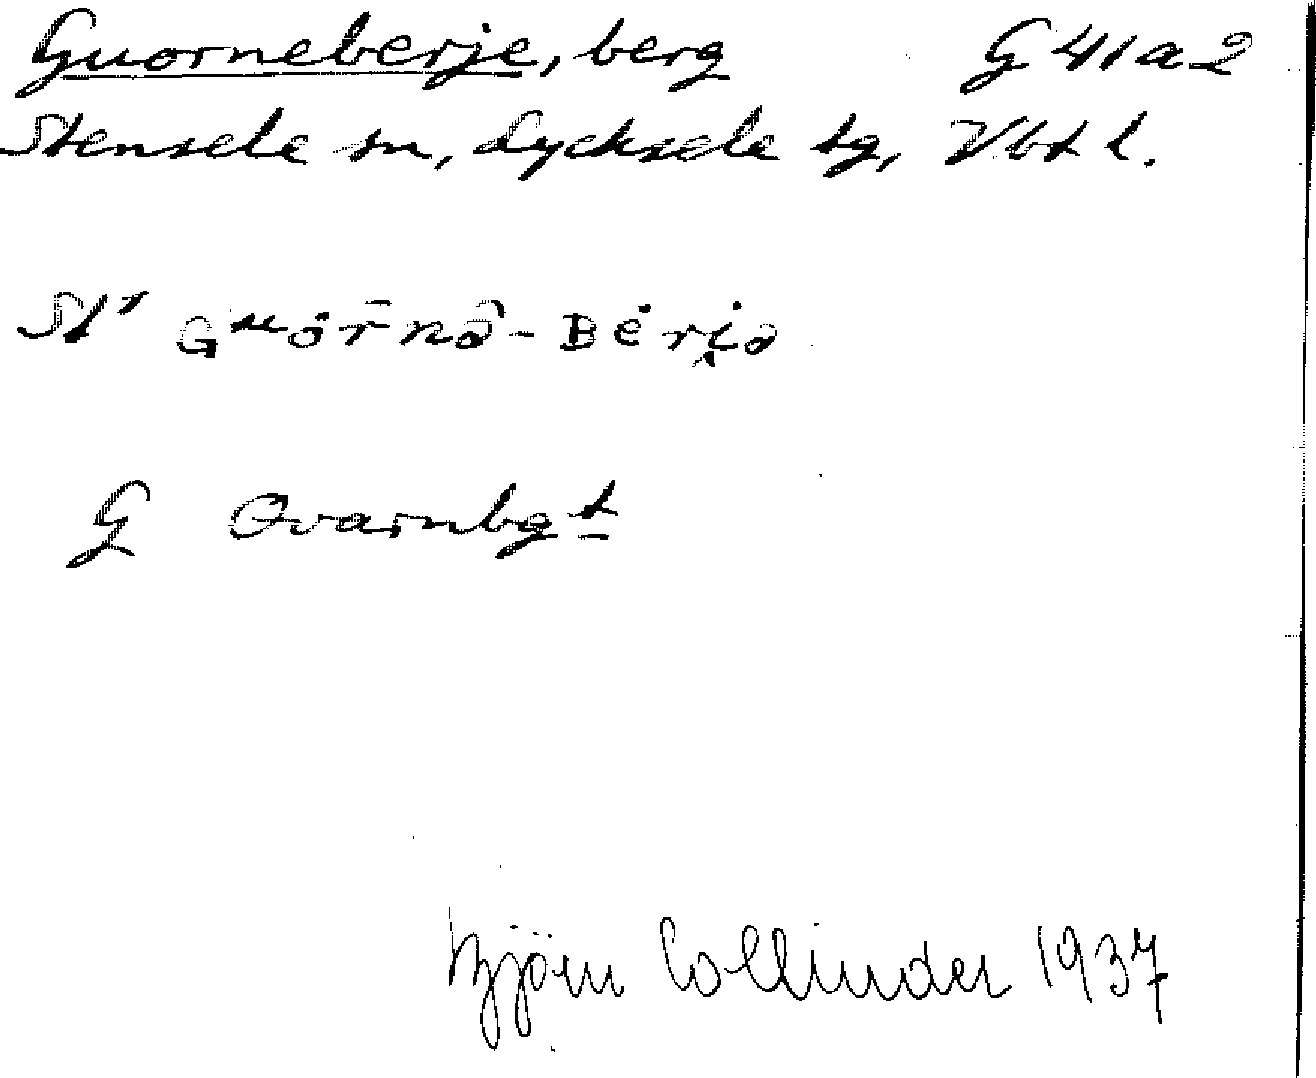 Guorneberje, berg G 41 a 2
Stensele sn, Lycksele tg, Vbt l.
St'
G Qvarnbgt
Björn Collinder 1937